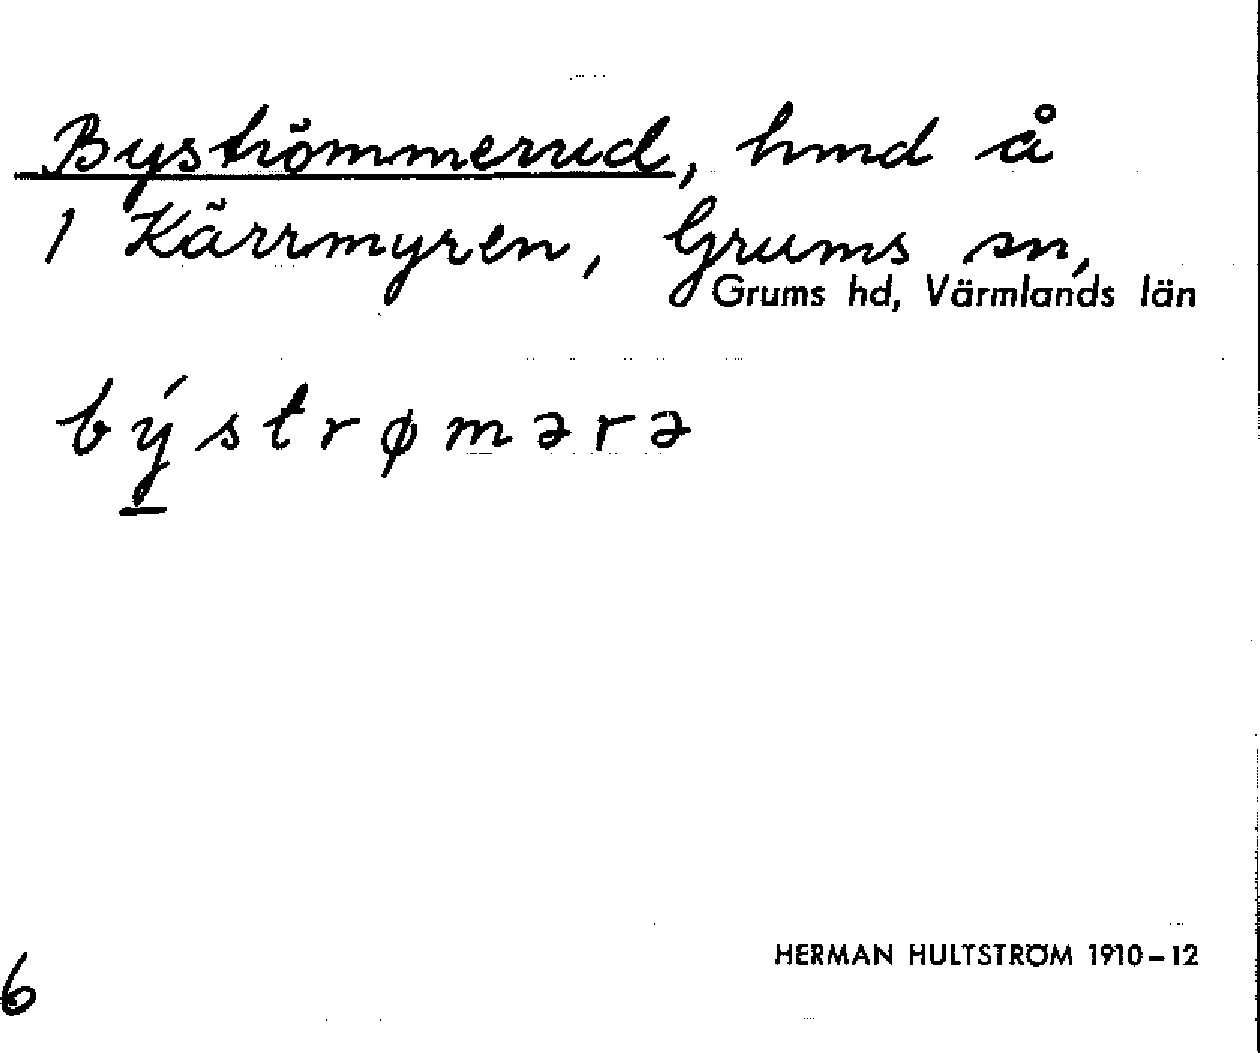 Byströmmerud, hmd å
1 Kärrmyren, Grums sn,
Grums hd, Värmlands län
býstrømərə
HERMAN HULTSTRÖM 1910–12
6